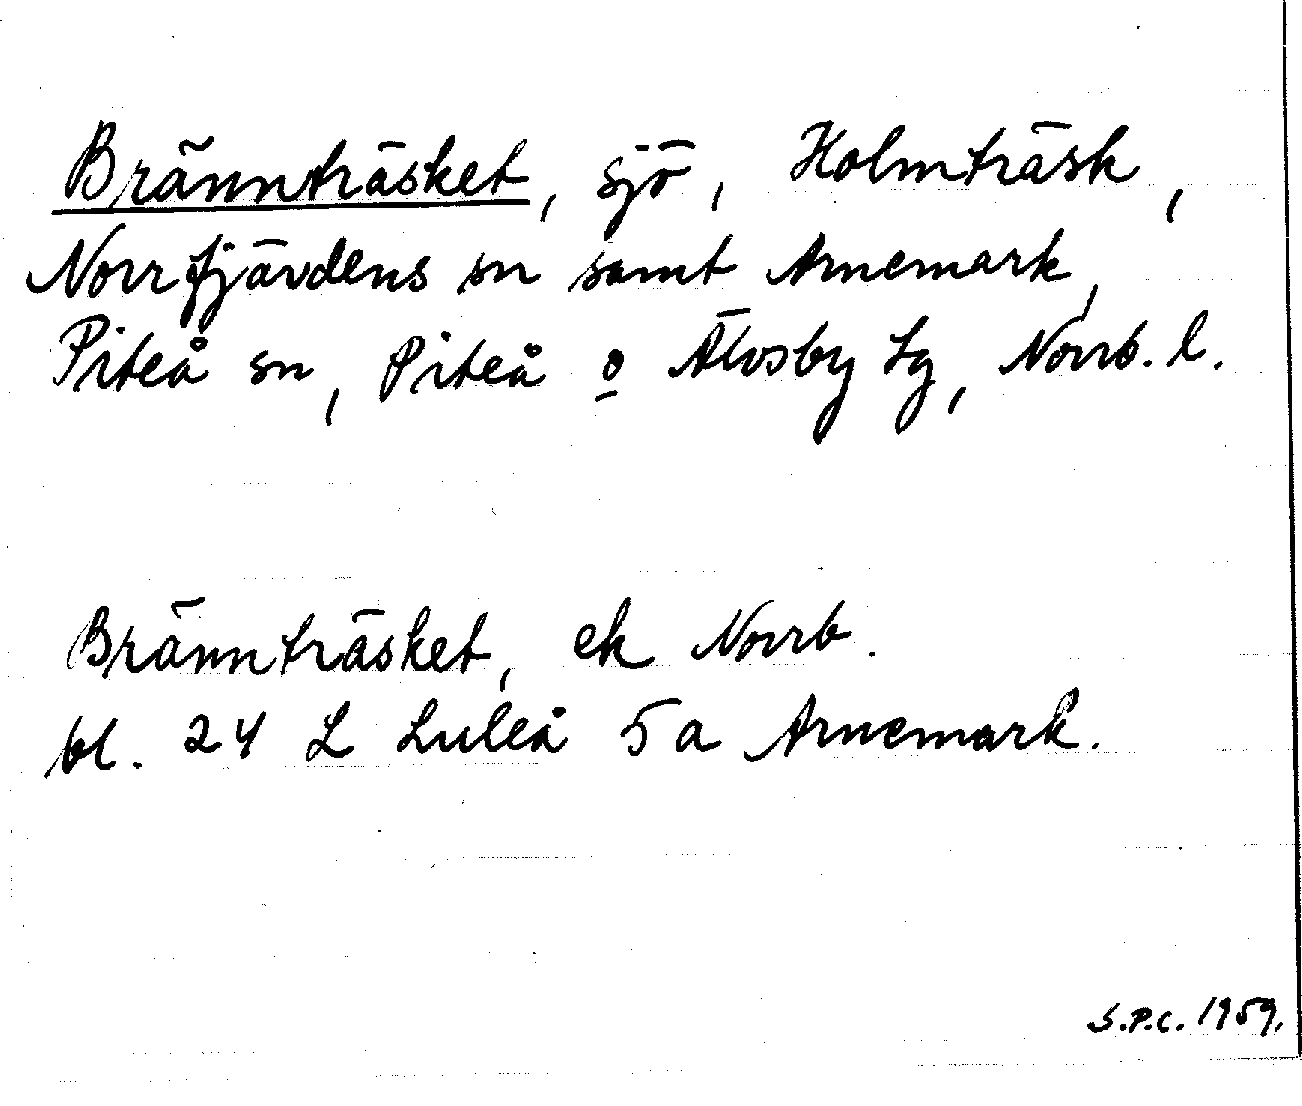 Brännträsket, sjö, Holmträsk,
Norrfjärdens sn samt Arnemark,
Piteå sn, Piteå o Älvsby tg, Norrb. l.
Brännträsket, ek Norrb.
bl. 24 L Luleå 5a Arnemark.
S.P.C. 1959.